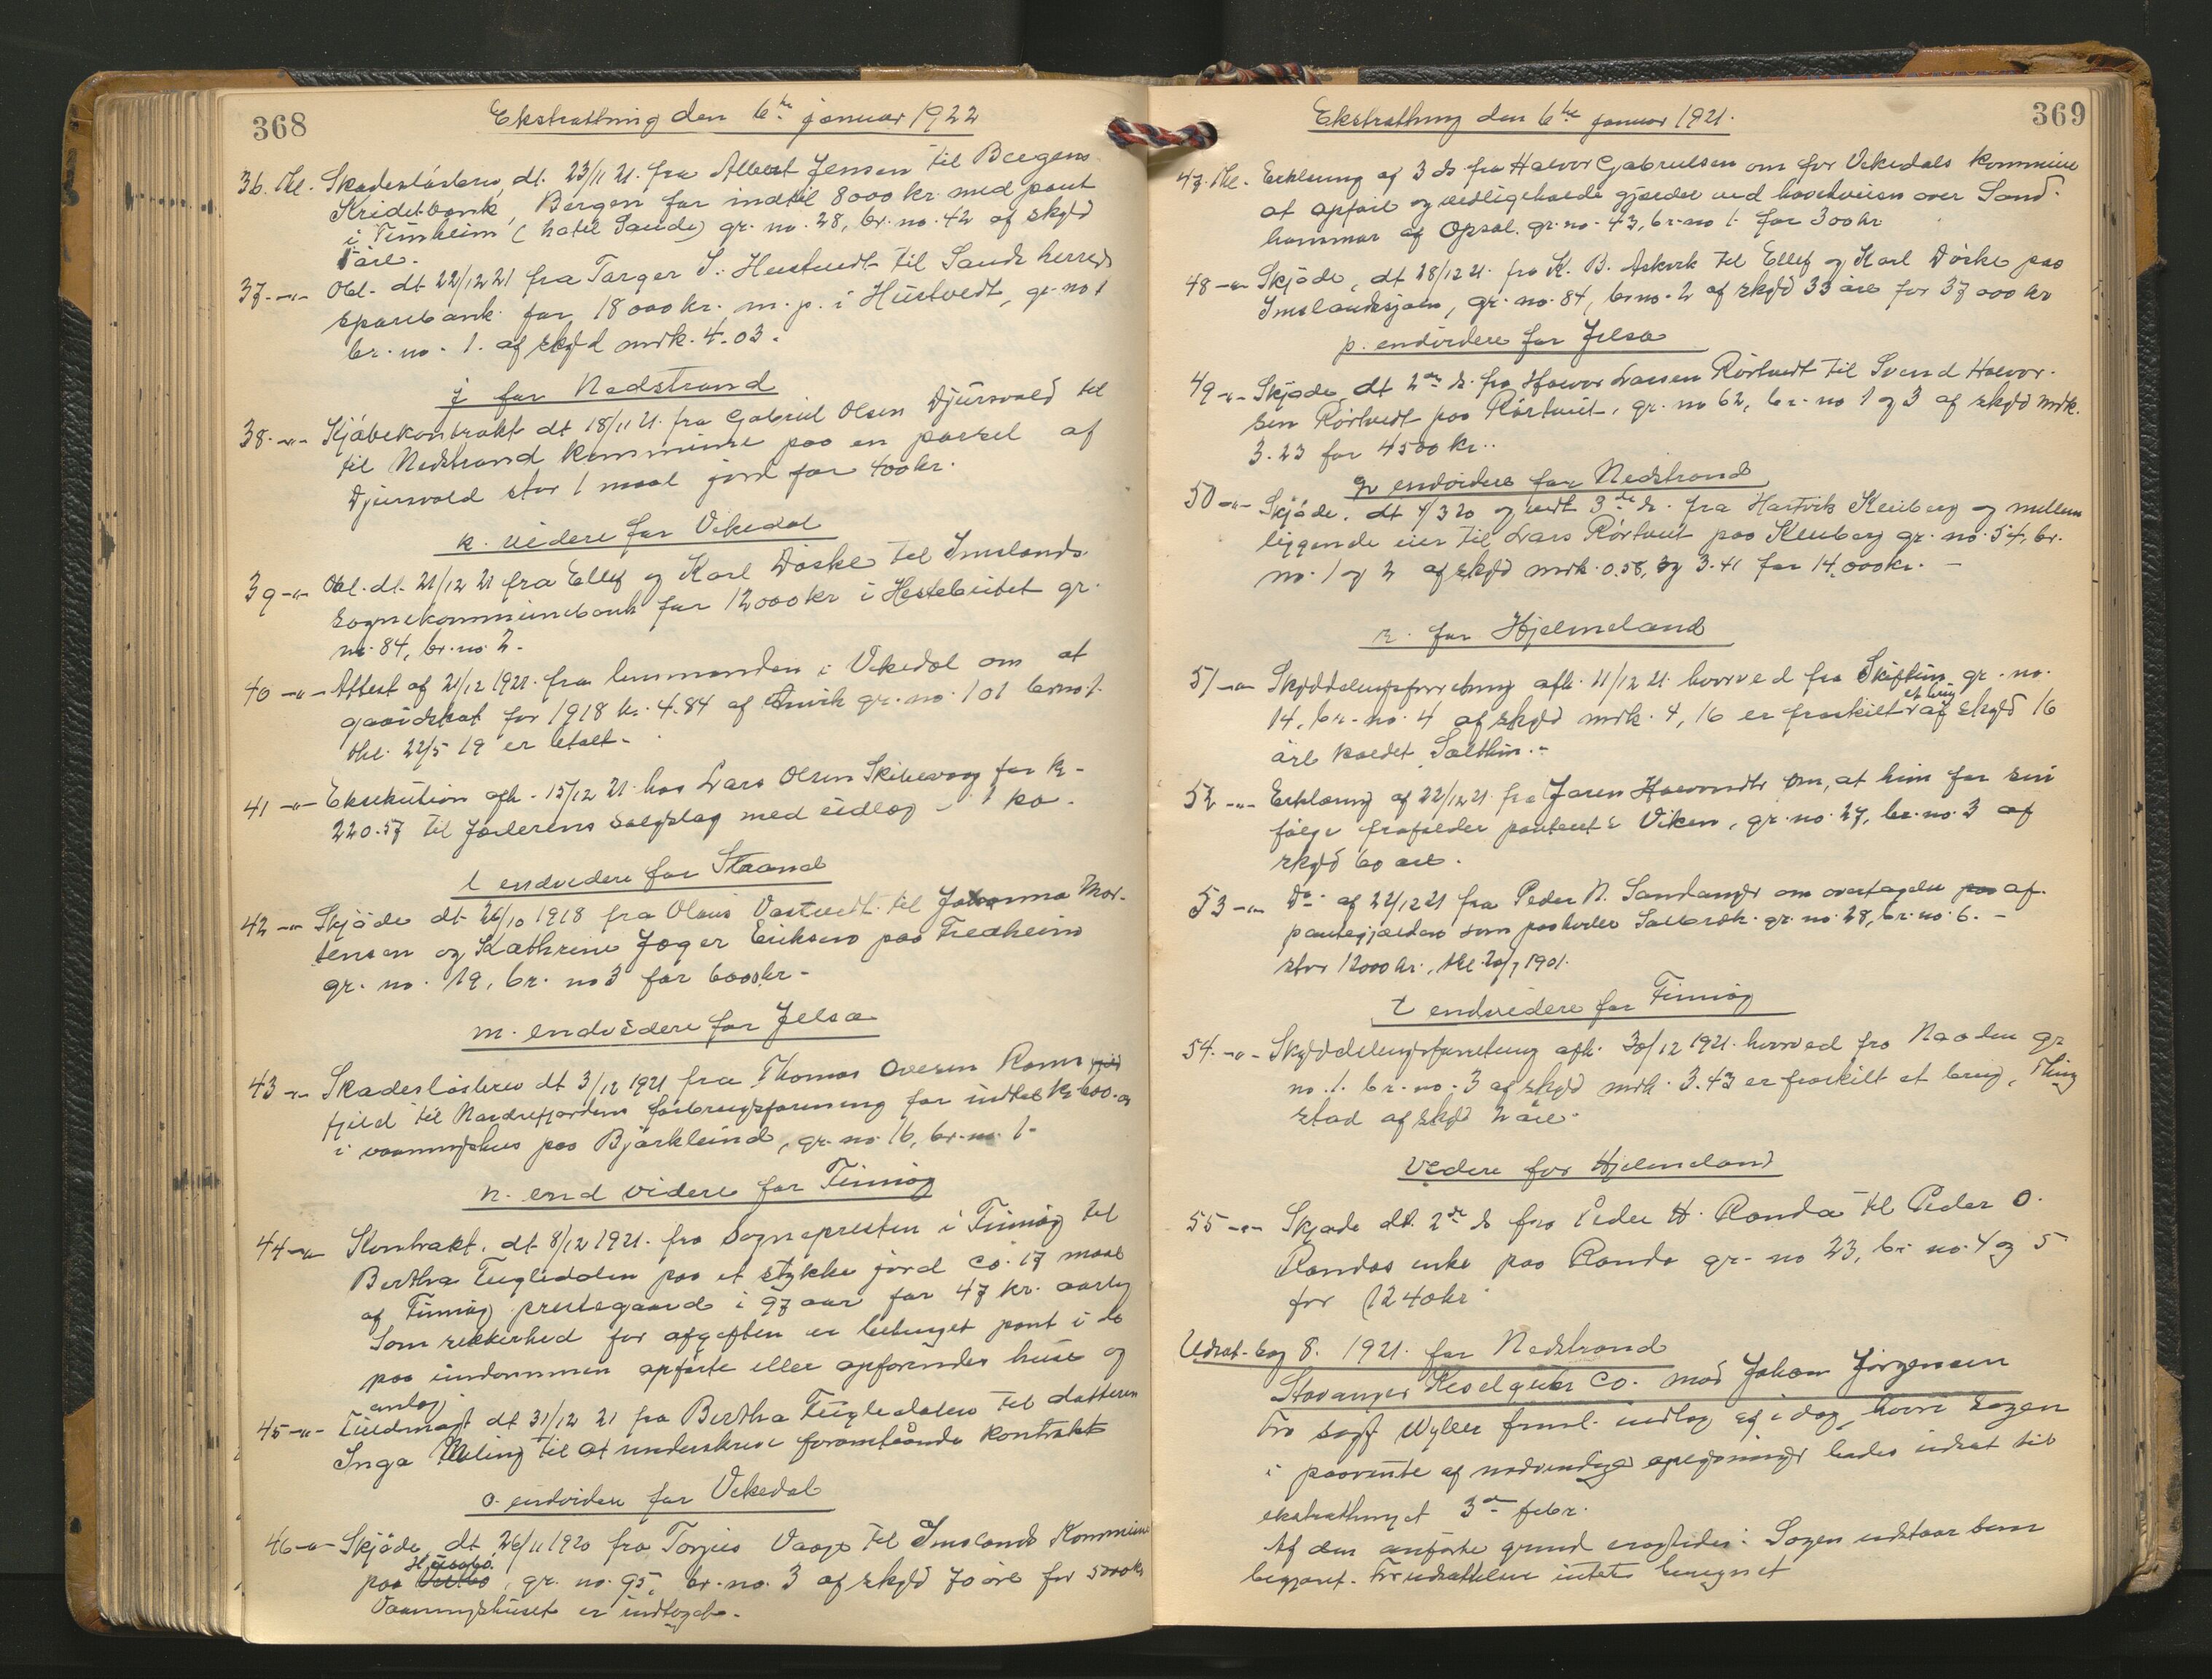 368
Ekstratting den 6te januar 1922
36. thl. Skadeslösbrev, dt. 23/11 21. fra Albert Jensen til Bergens
Kreditbank, Bergen for indtil 8000 kr. med pant
i Fimheim (hotel Sande) gr. no. 28, br. no. 42 af skyld
öre.
37 -"- Obl. dt 22/12 21 fra Torger S. Hustvedt til Sands herreds
sparebank for 18000 kr. m. p. i Hustvedt, gr. no 1
br. no. 1. af skyld mrk. 4.03.
j for Nedstrand
38 -"- Kjöbekontrakt dt 18/11 21. fra Gabriel Olsen Djursvold til
til Nedstrand kommune paa en parsel af
Djursvold stor 1 maal jord for 400 kr.
k. videre for Vikedal
39 -"- Obl. dt. 21/12 21 fra Ellef og Karl Döske til Imslands
sognekommunebank for 12000 kr i Hestebeitet gr.
no. 84, br. no. 2.
40 -"- Attest af 21/12 1921. fra lensmanden i Vikedal om at
gaardskat for 1918 kr. 4.84 af gr. no. 101 br no. 1.
thl. 22/5 19 er betalt.
41 -"- Eksekution afh. 15/12 21. hos Lars Olsen Skibevaag for kr.
220.57 til Jæderens salgslag med udlæg i 1 ko.
l endvidere for Strand
42 -"- Skjöde dt 26/10 1918 fra Olaus Vastvedt til Johanna Mor-
tensen og Kathrine Jæger Eriksen paa Fredheim
gr. no. 19, br. no 3 for 6000 kr.
m. endvidere for Jelsa
43 -"- Skadeslösbrev dt 3/12 1921 fra Thomas Ovesen Rams
fjeld til Nordrefjordens forbrugsforening for indtil kr 600.00
i vaaningshus paa Björkelund, gr. no. 16, br. no. 1.
n. end videre for Finnöy
44 -"- Kontrakt. dt 8/12 1921. fra Sognepresten i Finnöy til
Bertha Fugledalen paa et stykke jord ca. 17 maal
af Finnöy prestegaard i 97 aar for 47 kr. aarlig
Som sikkerhed for afgiften er betinget pant i de
paa eiendommen opförte eller opförendes huse og
anlæg
45 -"- Fuldmagt dt 31/12 21 fra Bertha Fugledalen til datteren
Inga Meling til at underskrive foranstaaende kontrakt
o. endvidere for Vikedal
46 -"- Skjöde dt 26/11 1920 fra Torjus Vaage til Imsland Kommune
paa Husabö, gr. no. 95, br. no. 3 af skyld 70 öre for 5000 kr
Vaaningshuset er indtaget.
369
Ekstratting den 6te januar 1921.
47. thl. Erklæring af 3 ds fra Halvor Gabrielsen om for Vikedals kommune
at opföre og vedligeholde gjærder ved hovedveien over Sand-
hammar af Opsal. gr. no. 43, br. no 1. for 300 kr
48 -"- Skjöde, dt 28/12 21. fra K. B. Askvik til Ellef og Karl Döske paa
Imslandsjöen, gr. no. 84, br no. 2 af skyld 33 öre for 37000 kr
p. endvidere for Jelsa
49 -"- Skjöde, dt 2den ds. fra Halvor Larsen Rörtvedt til Svend Halvor-
sen Rörtvedt paa Rörtveit, gr. no 62, br. no 1 og 3 af skyld mrk.
3.23 for 4500 kr.
q endvidere for Nedstrand
50 -"- Skjöde. dt 4/3 20 og vedt 3die ds. fra Hartvik Kleiberg og mellem
liggende eier til Lars Rörtveit paa Kleiberg gr. no. 54, br.
no. 1 og 2 af skyld mrk. 0.58, og 3.41 for 14.000 kr.
r. for Hjelmeland
51 -"- Skylddelingsforretning afh. 11/12 21. hvorved fra Skiftun gr. no.
14, br. no. 4 af skyld mrk. 4,16 er fraskilt et brug af skyld 16
öre kaldet Salthun.
52 -"- Erklæring af 22/12 21. fra Jaren Halvorsdtr om, at hun for sin
fölge frafalder panteret i Viken, gr. no. 27, br. no. 3 af
skyld 60 öre.
53 -"- Do. af 22/12 21 fra Peder N. Sandanger om overtagelse paa af
pantegjælden som paahviler gr. no. 28, br. no. 6.
stor 12000 kr., thl. 20/7 1901.
t endvidere for Finnöy
54. -"- Skylddelingsforretning afh. 30/12 1921. hvorved fra Naaden gr
no. 1. br. no. 3 af skyld mrk. 3.43 er fraskilt et brug, Thing
stad af skyld 2 öre.
Videre for Hjelmeland
55 -"- Skjöde dt. 2de ds fra Peder H. Randa til Peder O.
Randas enke paa Randa gr. no 23, br no. 4 og 5
for 1240 kr.
Udsat. sag 8. 1921. for Nedstrand
Stavanger Kiselguhr Co. mod Johan Jörgensen
Fra sagf Wyller freml. indlæg af i dag, hvori sagen
i paavente af nödvendige oplysninger bedes udsat til
ekstrathinget 3die febr.
Af den anförte grund eragtedes: Sagen udstaar som
begjæret. For udsættelsen intet beregnet